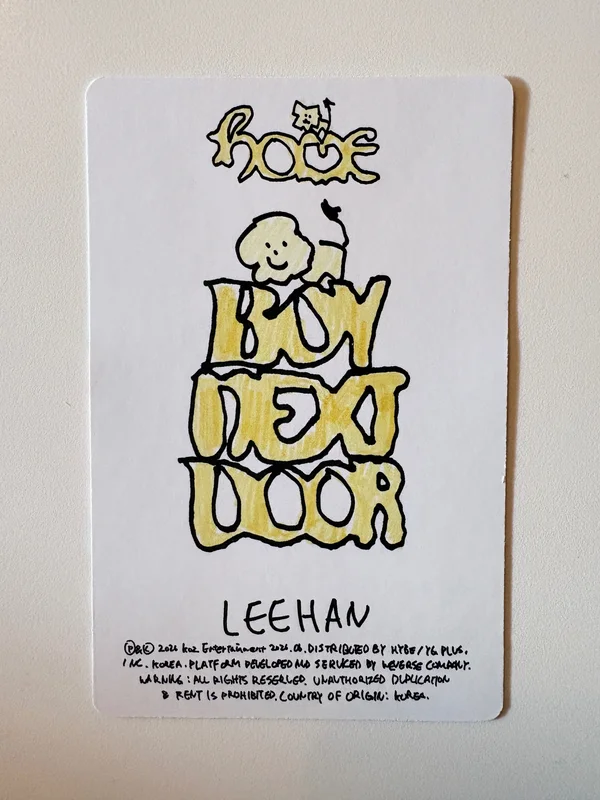 home
BOY
NEXT
DOOR
LEEHAN
Ⓟ&Ⓒ 2026 KOZ Entertainment 2026.06. DISTRIBUTED BY HYBE/YG PLUS,
INC. KOREA. PLATFORM DEVELOPED AND SERVICED BY WEVERSE COMPANY.
WARNING: ALL RIGHTS RESERVED. UNAUTHORIZED DUPLICATION
& RENT IS PROHIBITED. COUNTRY OF ORIGIN: KOREA.